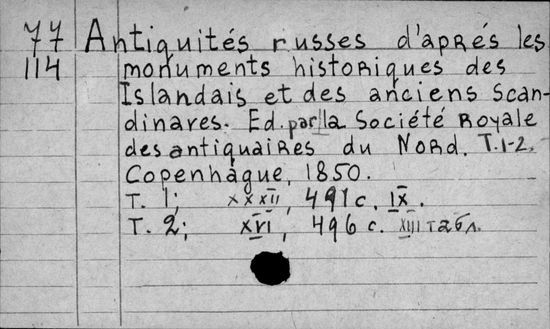 77 Antiquités russes d'aprés les
114 monuments historiques des
Islandais et des anciens Scan-
dinares. Ed. par la Société Royale
des antiquaires du Nord. T. 1-2.
Copenhague, 1850.
T. 1; XXXII, 491 с. IX.
T. 2; XVI, 496 с. XIII табл.